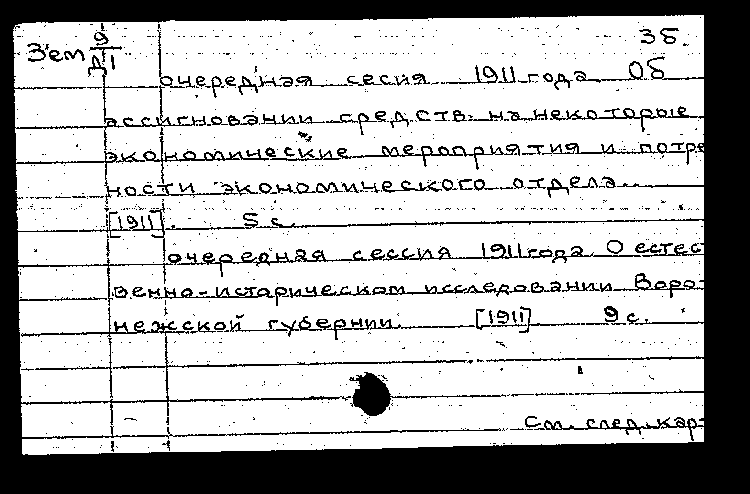 Зем 9/Д1 36.
очередная сесия 1911 года. Об
ассигновании средств на некоторые
экономические мероприятия и потре
ности экономического отдела.
[1911]. 5 с.
очередная сессия 1911 года. О естест
венно-историческом исследовании Воро-
нежской губернии. [1911] 9 с.
См. след. кар-